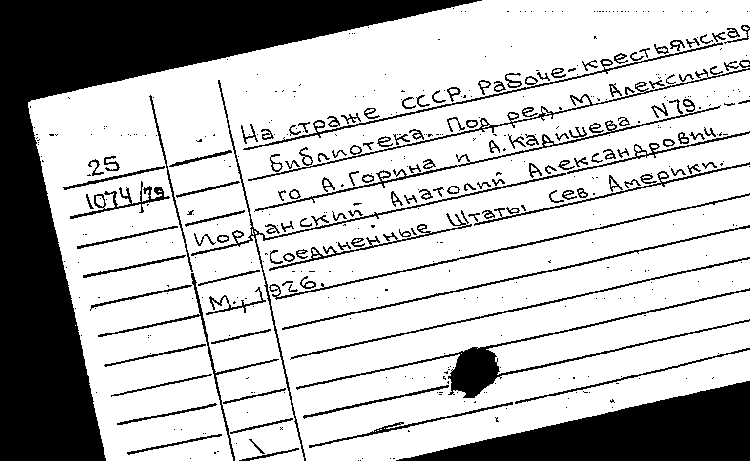 На страже СССР. Рабоче-крестьянская
библиотека. Под ред. М. Алексинско
25
го, А. Горина и А. Кадишева. N79.
1074/79
Иорданский, Анатолий Александрович.
Соединенные Штаты Сев. Америки.
М., 1926.